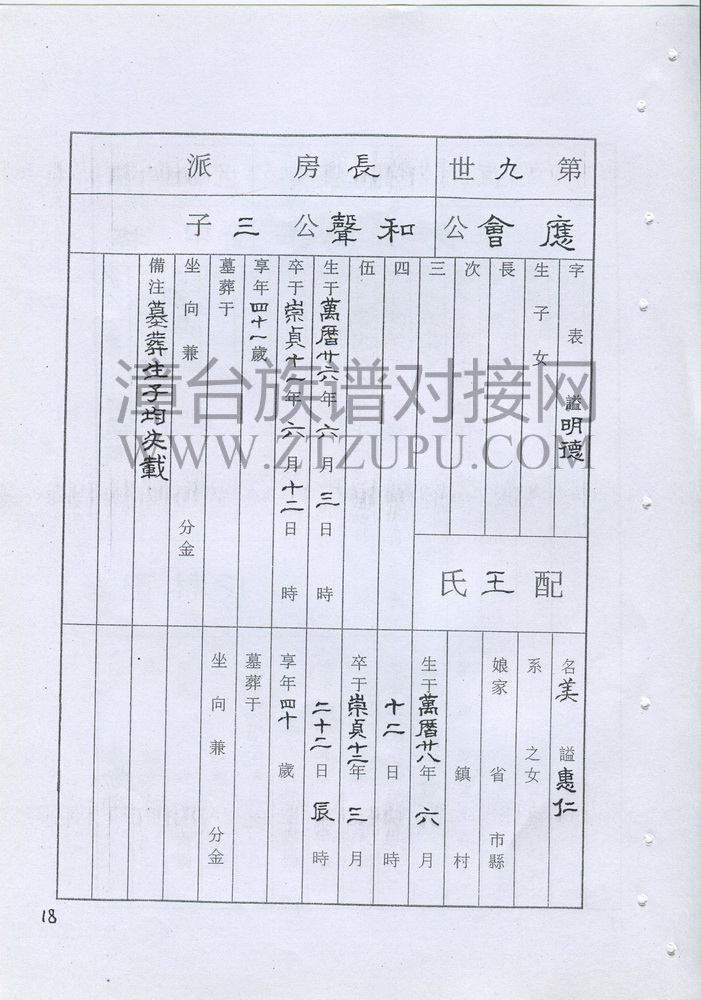 第九世 長房派
應會公 和聲公三子
字表 諡明德
生子女
長
次
三
四
伍
生于萬曆廿六年六月三日時
卒于崇貞十一年六月十二日時
享年四十一歲
墓葬于
坐向兼 分金
備注墓葬生子均失載
配王氏
名美 諡惠仁
系 之女
娘家 省 市縣
鎮 村
生于萬曆廿八年六月
十二日時
卒于崇貞十三年三月
二十二日辰時
享年四十歲
墓葬于
坐向兼 分金
18
漳台族谱对接网
WWW.ZTZUPU.COM